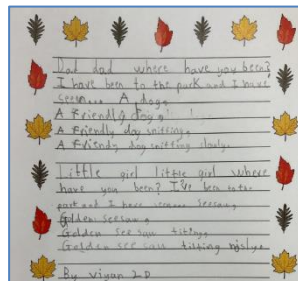 Dad dad where have you been?
I have been to the park and I have
seen... A dog,
A Friendly dog,
A Friendly dog sniffing,
A Friendly dog sniffing slowly.
Little girl little girl where
have you been? I've been to the
park and I have seesaw,
Golden seesaw,
Golden see saw tilting,
Golden see saw tilting
By viyan 2D